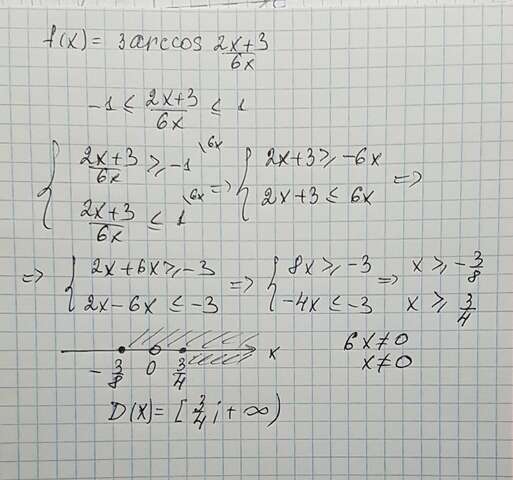 f(x) = 3 arccos (2x+3)/(6x)
-1 ≤ (2x+3)/(6x) ≤ 1
{ (2x+3)/(6x) ≥ -1 \6x => { 2x+3 ≥ -6x
{ (2x+3)/(6x) ≤ 1 \6x => { 2x+3 ≤ 6x =>
=> { 2x+6x ≥ -3 => { 8x ≥ -3 => x ≥ -3/8
{ 2x-6x ≤ -3 => { -4x ≤ -3 x ≥ 3/4
-3/8 0 3/4 x
6x ≠ 0
x ≠ 0
D(x) = [3/4; +∞)